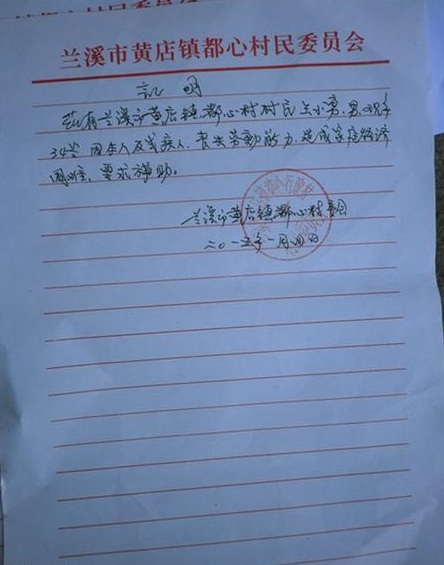 兰溪市黄店镇都心村民委员会
证明
兹有兰溪市黄店镇都心村村民 小勇,男,现年
34岁 因本人及残疾人,丧失劳动能力,造成家庭经济
困难,要求补助。
兰溪市黄店镇都心村委会
二〇一五年一月四日